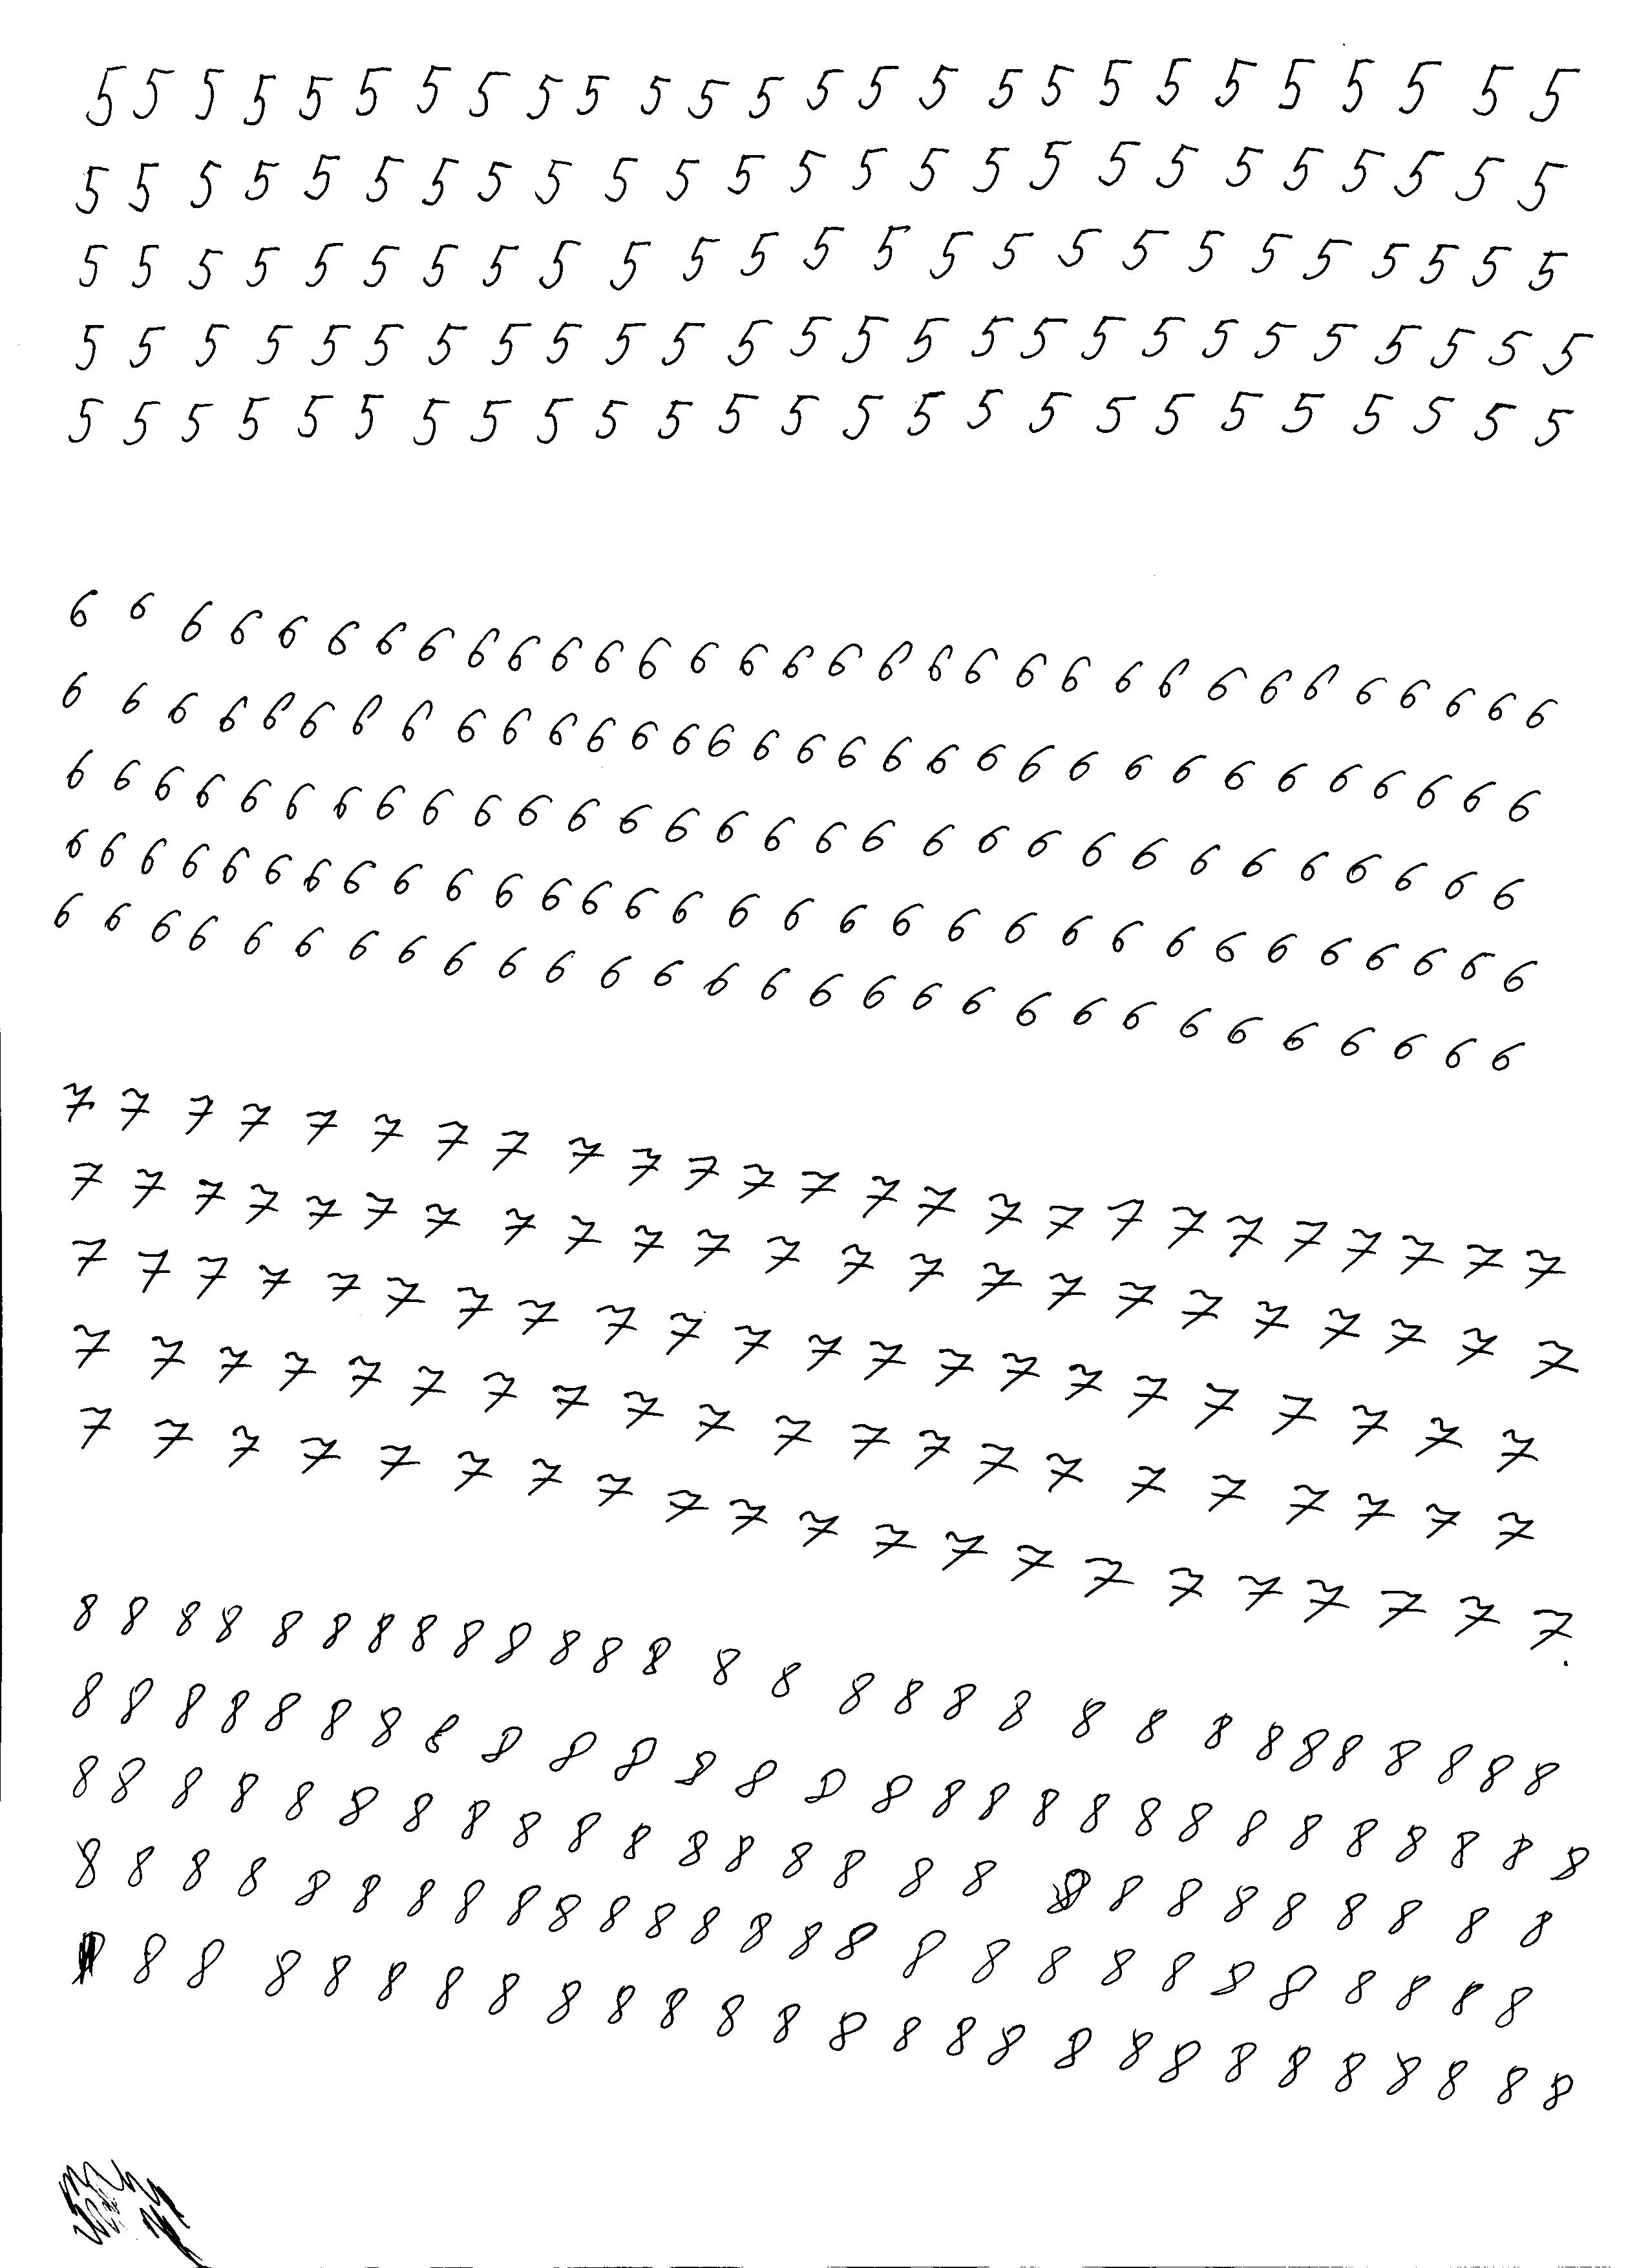 5 5 5 5 5 5 5 5 5 5 5 5 5 5 5 5 5 5 5 5 5 5 5 5 5 5
5 5 5 5 5 5 5 5 5 5 5 5 5 5 5 5 5 5 5 5 5 5 5 5 5
5 5 5 5 5 5 5 5 5 5 5 5 5 5 5 5 5 5 5 5 5 5 5 5 5
5 5 5 5 5 5 5 5 5 5 5 5 5 5 5 5 5 5 5 5 5 5 5 5 5 5
5 5 5 5 5 5 5 5 5 5 5 5 5 5 5 5 5 5 5 5 5 5 5 5 5
6 6 6 6 6 6 6 6 6 6 6 6 6 6 6 6 6 6 6 6 6 6 6 6 6 6 6 6 6 6 6 6
6 6 6 6 6 6 6 6 6 6 6 6 6 6 6 6 6 6 6 6 6 6 6 6 6 6 6 6 6 6 6 6
6 6 6 6 6 6 6 6 6 6 6 6 6 6 6 6 6 6 6 6 6 6 6 6 6 6 6 6 6 6
6 6 6 6 6 6 6 6 6 6 6 6 6 6 6 6 6 6 6 6 6 6 6 6 6 6 6 6 6 6 6
6 6 6 6 6 6 6 6 6 6 6 6 6 6 6 6 6 6 6 6 6 6 6 6 6 6 6 6 6
7 7 7 7 7 7 7 7 7 7 7 7 7 7 7 7 7 7 7 7 7 7 7 7 7
7 7 7 7 7 7 7 7 7 7 7 7 7 7 7 7 7 7 7 7 7 7 7
7 7 7 7 7 7 7 7 7 7 7 7 7 7 7 7 7 7 7 7 7 7
7 7 7 7 7 7 7 7 7 7 7 7 7 7 7 7 7 7 7 7 7
7 7 7 7 7 7 7 7 7 7 7 7 7 7 7 7 7 7 7 7 7.
8 8 8 8 8 8 8 8 8 8 8 8 8 8 8 8 8 8 8 8 8 8 8 8 8 8 8 8 8
8 8 8 8 8 8 8 8 8 8 8 8 8 8 8 8 8 8 8 8 8 8 8 8 8 8 8 8
8 8 8 8 8 8 8 8 8 8 8 8 8 8 8 8 8 8 8 8 8 8 8 8 8 8
8 8 8 8 8 8 8 8 8 8 8 8 8 8 8 8 8 8 8 8 8 8 8 8 8 8 8
8 8 8 8 8 8 8 8 8 8 8 8 8 8 8 8 8 8 8 8 8 8 8 8 8 8